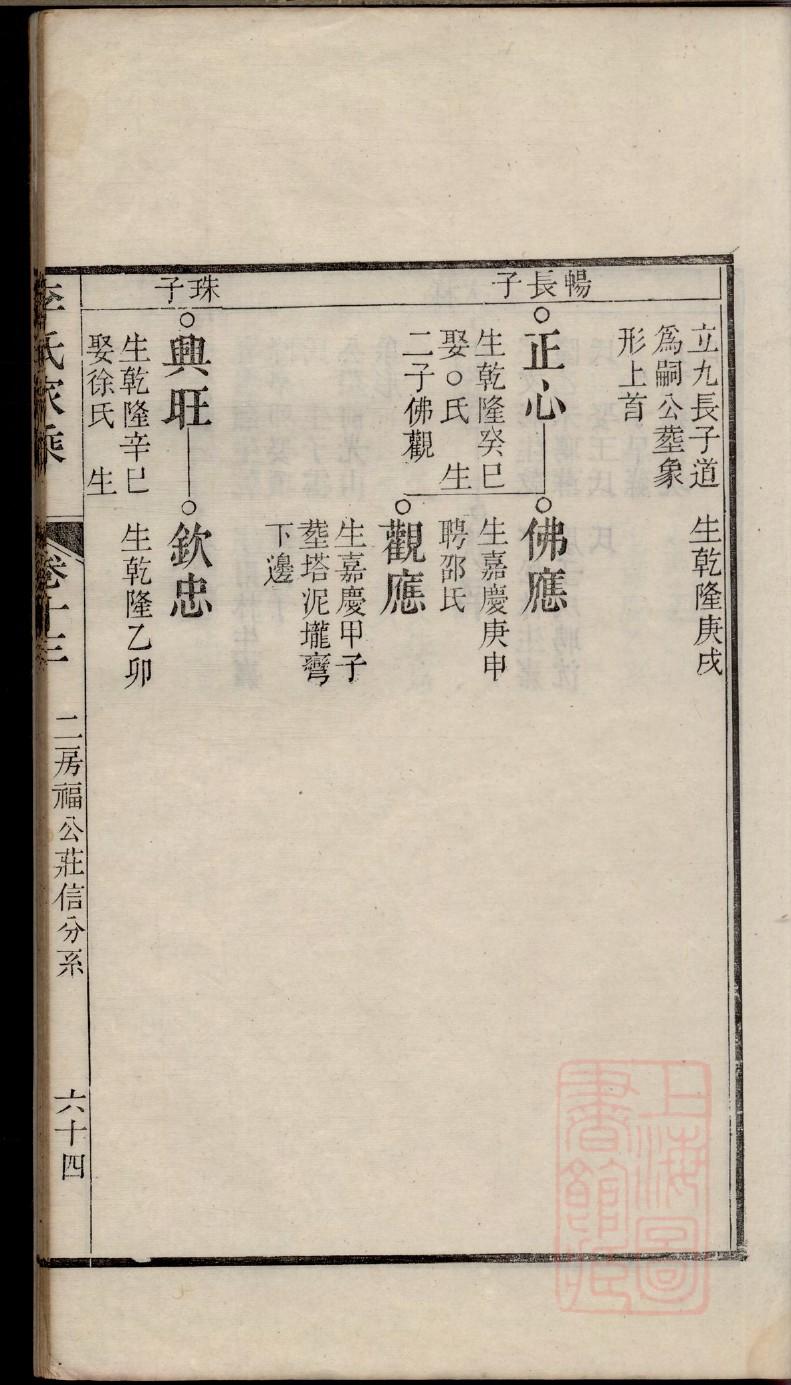 立九長子道
爲嗣公塟象
形上首
生乾隆庚戌
暢長子
正心
生乾隆癸巳
娶○氏 生
二子佛觀
佛應
生嘉慶庚申
聘邵氏
觀應
生嘉慶甲子
塟塔泥壠彎
下邊
珠子
興旺
生乾隆辛巳
娶徐氏 生
欽忠
生乾隆乙卯
李氏家乘
卷十三
二房福公莊信分系
六十四
上海圖
書館藏